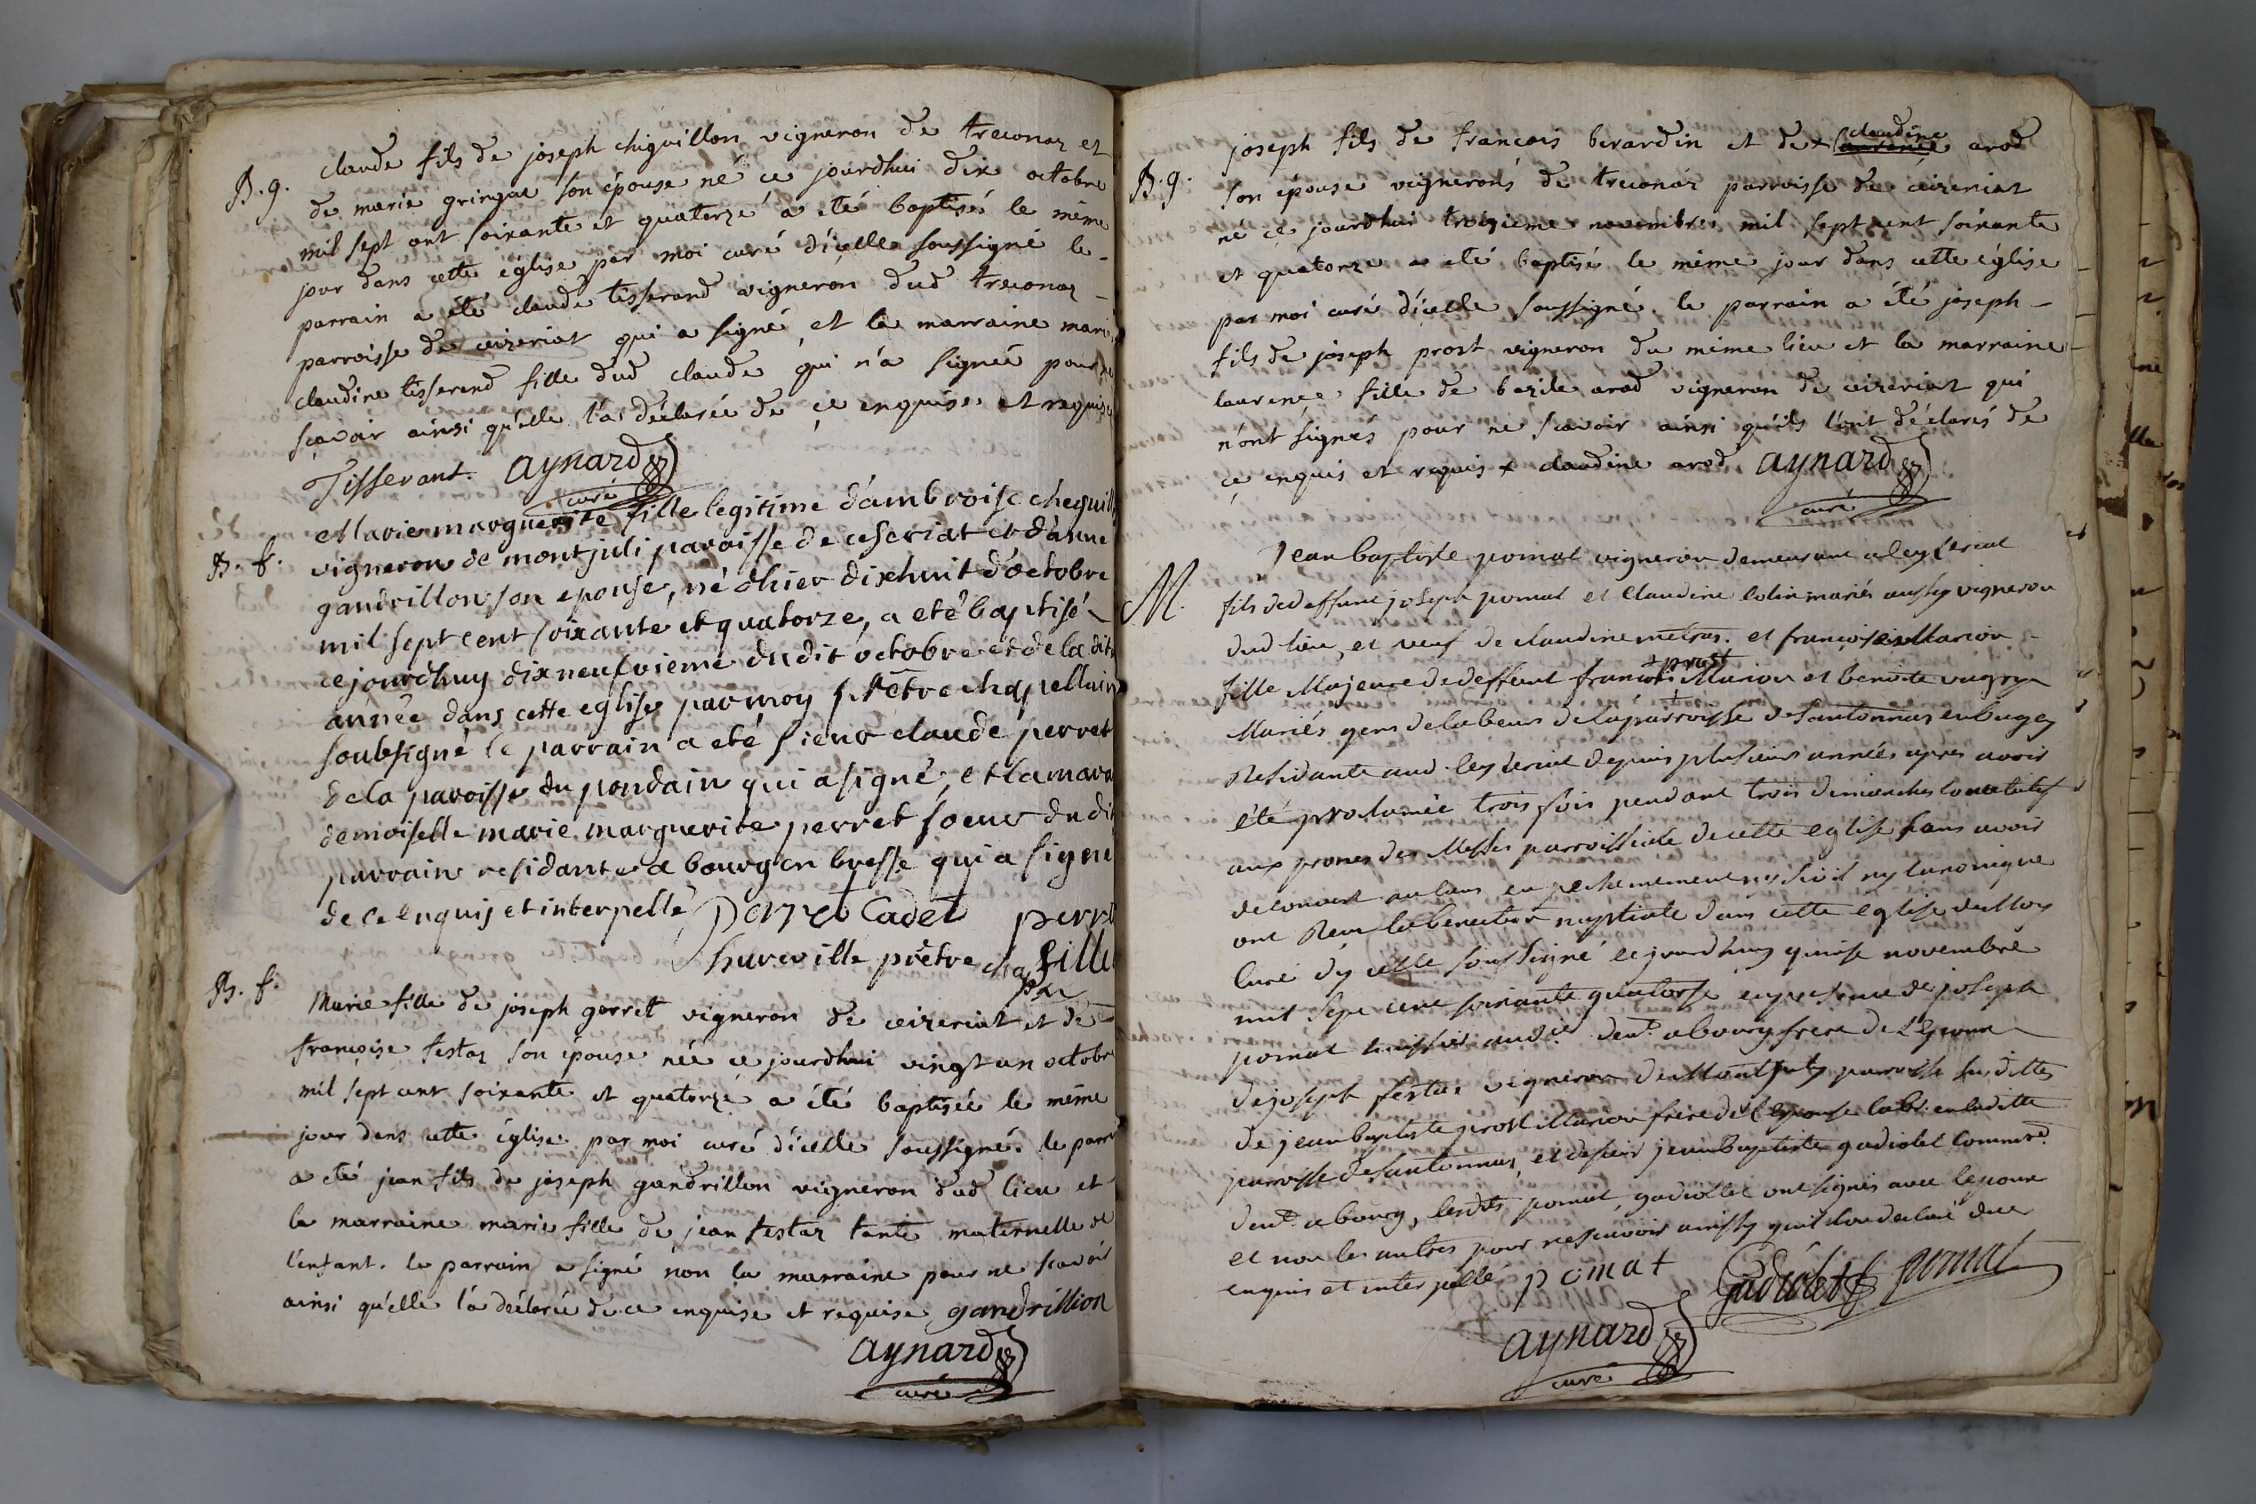 B. g. claude fils de joseph chiquillon vigneron de treconaz et
de marie gringue son épouse né ce jourdhui dix octobre
mil sept cent soixante et quatorze a été baptisé le même
jour dans cette église par moi curé d'icelle soussigné le
parrain a été claude tisserand vigneron dud treconaz
parroisse de ceizeriat qui a signé et la marraine marie
claudine tisserand fille dud claude qui n'a signée pour ne
sçavoir ainsi qu'elle l'a déclarée de ce enquise et requise
Tisserant. aynard
curé
B. f. Marie marguerite fille legitime d'ambroise chequill
vigneron de montjuli paroisse de ceseriat et d'anne
gandrillon son epouse, né d'hier dixhuit d'octobre
mil sept cent soixante et quatorze, a eté baptisé
ce jourdhuy dixneufvieme dudit octobre et de la dite
année dans cette eglise par moy prêtre chapellain
soubsigné le parrain a eté sieur claude perret
de la paroisse du pondain qui a signé, et la mara
demoiselle marie marguerite perret soeur du dit
parrain residante a bourg en bresse qui a signé
de ce enquis et interpellé Perret Cadet perret
hureville prêtre cha fille
B. f. Marie fille de joseph gorret vigneron de ceizeriat et de
françoise festaz son épouse née ce jourdhui vingt un octobre
mil sept cent soixante et quatorze a été baptisée le même
jour dans cette église par moi curé d'icelle soussigné. le parrain
a été jean fils de joseph gandrillon vigneron dud lieu et
la marraine marie fille de jean festaz tante maternelle de
l'enfant. le parrain a signé non la marraine pour ne scavoir
ainsi qu'elle l'a déclarée de ce enquise et requise gandrillion
aynard
curé
joseph fils de francois berardin et de + laurence claudine arod
B. g. son épouse vignerons de treconaz parroisse de ceizeriat
né ce jourdhui troizieme novembre mil sept cent soixante
et quatorze a été baptisé le même jour dans cette église
par moi curé d'icelle soussigné. le parrain a été joseph
fils de joseph prost vigneron du même lieu et la marraine
laurence fille de bazile arod vigneron de ceizeriat qui
n'ont signés pour ne scavoir ainsi qu'ils l'ont déclarés de
ce enquis et requis + claudine arod. aynard
curé
Jean baptiste pomat vigneron demeurant a leyseriat
M. fils de deffunt joseph pomat et claudine colin mariés aussy vigneron
dud lieu, et veuf de claudine metras. et françoise Marion
fille Majeure de deffunt francois + prost Marion et benoite
Mariés gens de labeur de la parroisse de santonnas en bugey
Residante aud leyseriat depuis plusieurs années apres avoir
été proclamée trois fois pendant trois dimanches consecutifs
aux prones des Messes parroissiale de cette eglise sans avoir
decouvert aucuns empechemement ny sivil ny canonique
ont Reçu la benediction nuptiale dans cette eglise de Moy
curé d'y celle soussigné cejourdhuy quinse novembre
mil sept cent soixante quatorse en presence de joseph
pomat huissier aud. demt. a bourg frere de l'epoux
de joseph festaz vigneron de Montjuly parroisse susditte
de jean baptiste prost Marion frere de l'epouse lab. en laditte
parroisse de santonnas, et de sieur jean baptiste gadiolet
demt. a bourg, lesdts pomat, gadiollet ont signés avec lepoux
et non les autres pour ne scavoir ainssy quil ont declaré de ce
enquis et interpellé pomat Gadiolet pomat
aynard
curé